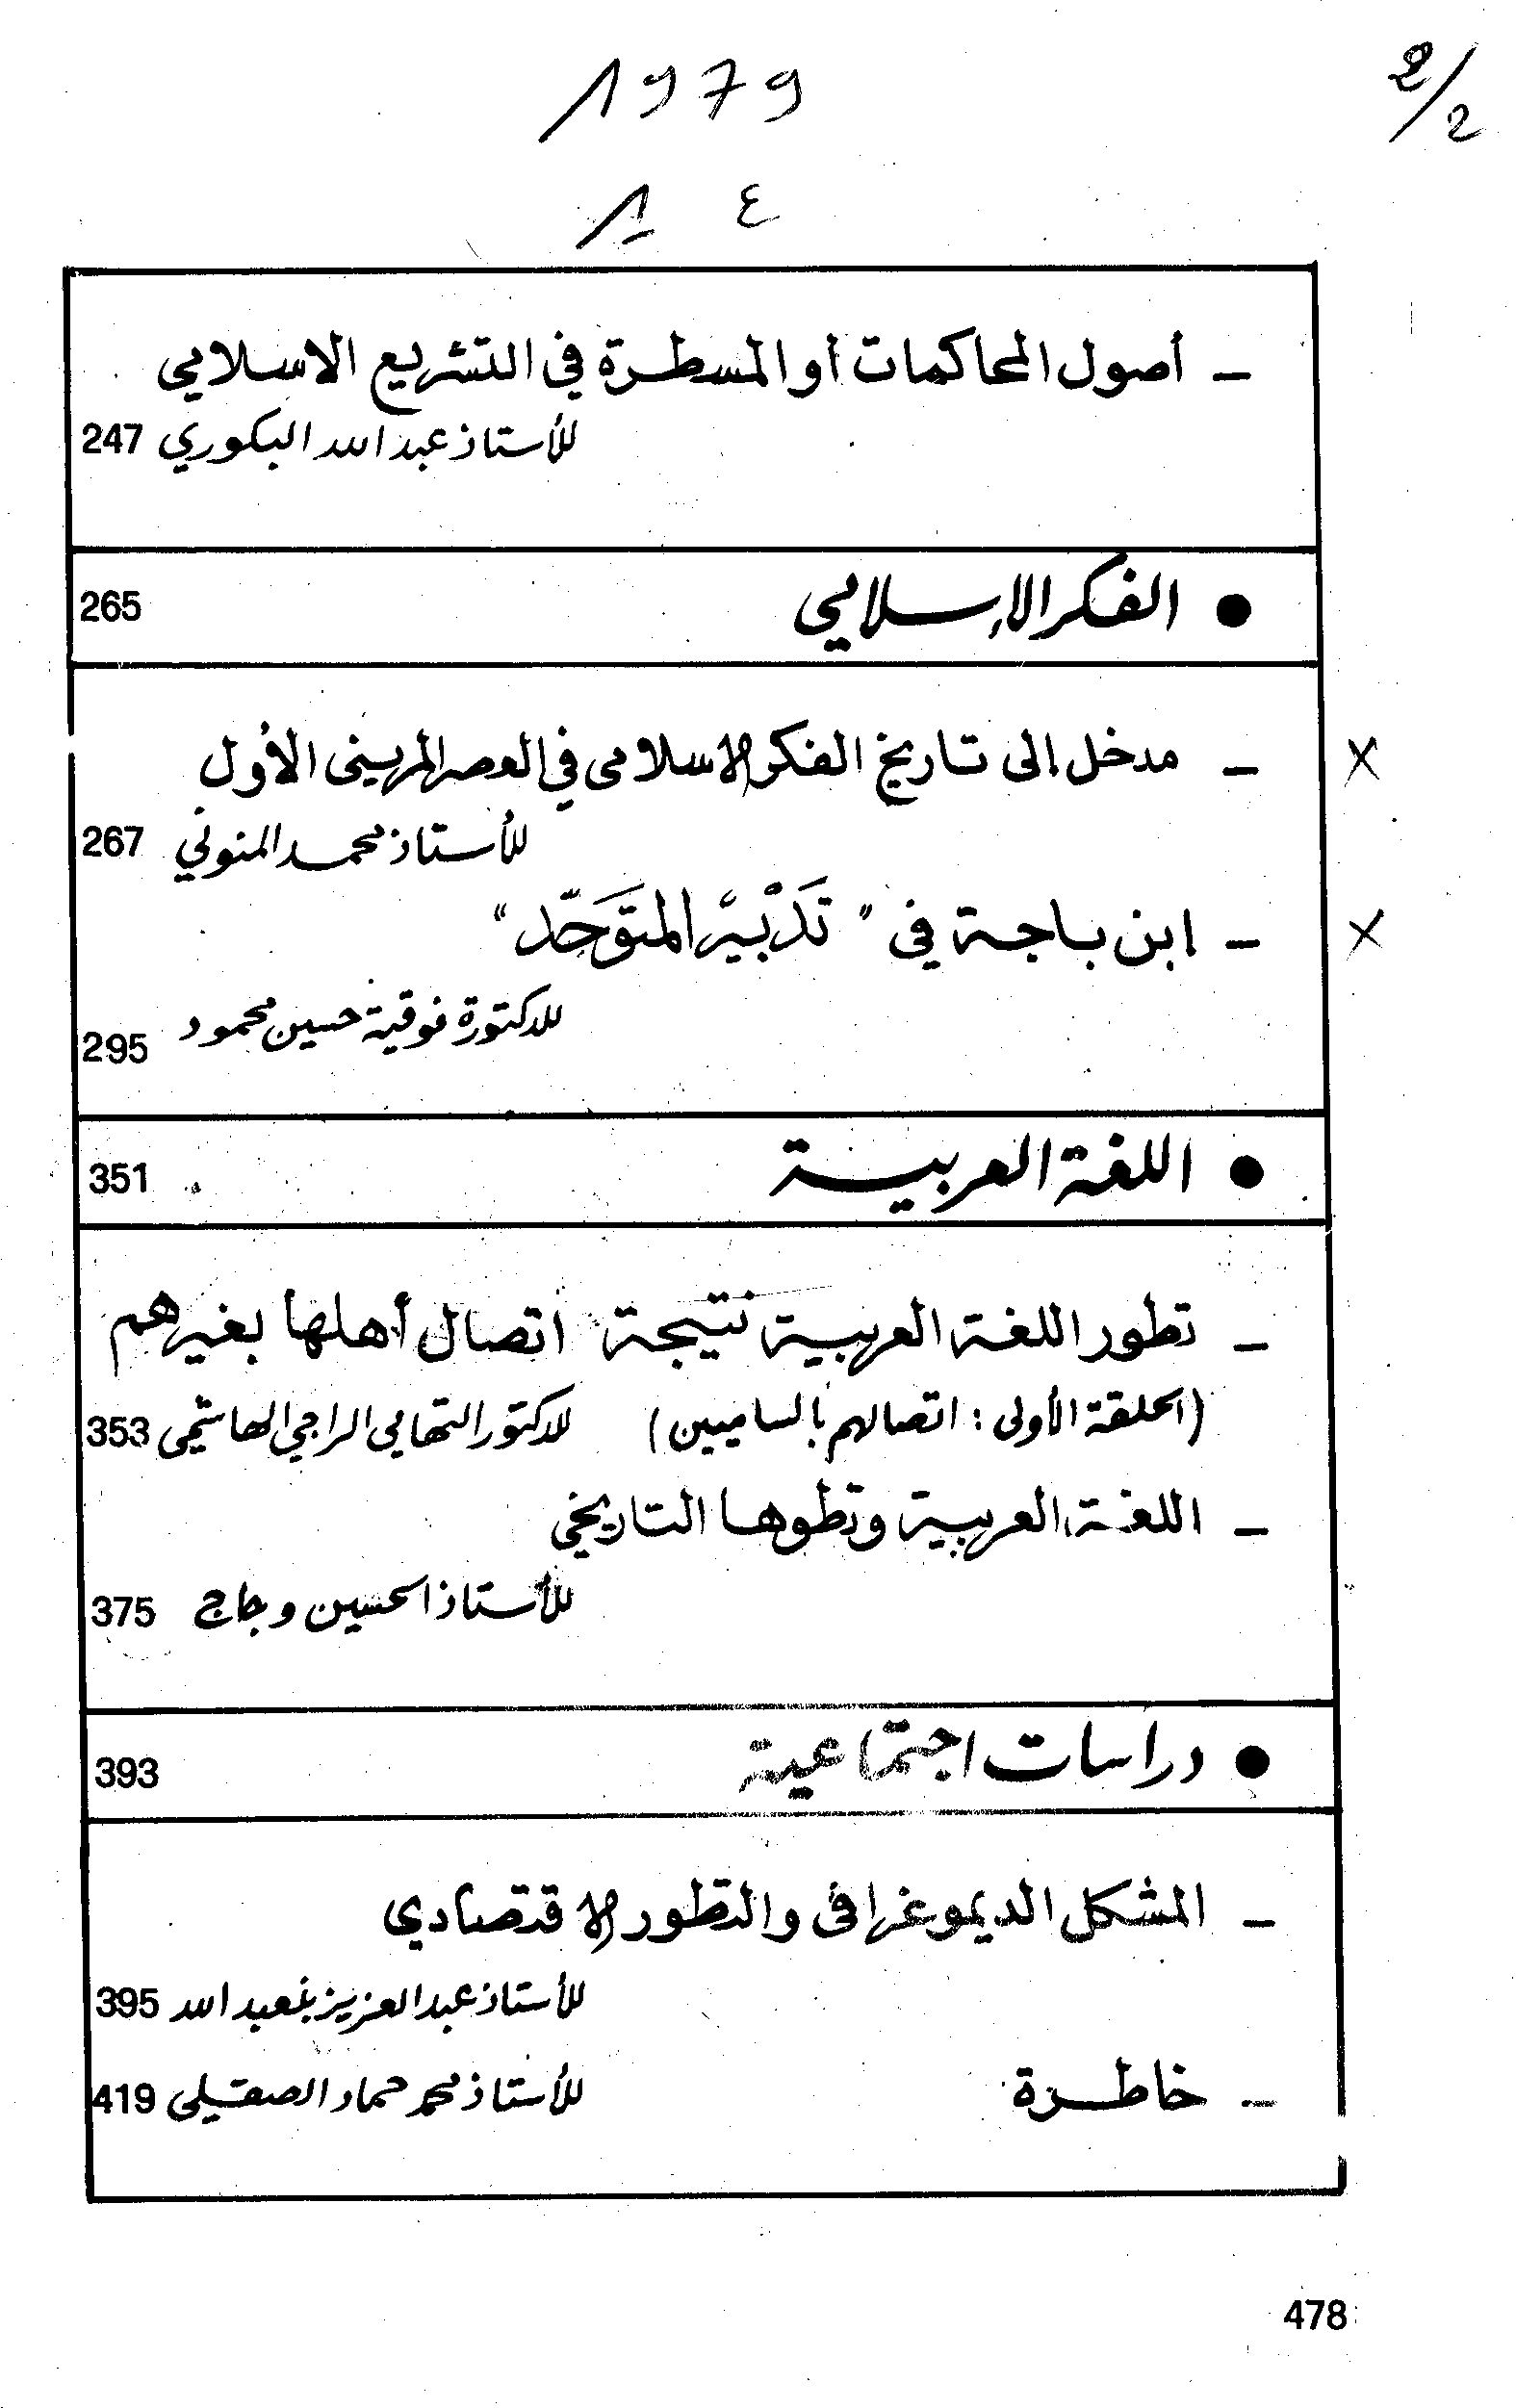 1979
2/2
1 ع
- أصول المحاكمات أو المسطرة في التشريع الاسلامي
للأستاذ عبد الله البكوري 247
• الفكر الإسلامي 265
- مدخل إلى تاريخ الفكر الاسلامى في العصر المرينى الأول
للأستاذ محمد المنوني 267
- ابن باجة في " تَدْبيْر المتَوَحّد "
للدكتورة فوقية حسين محمود 295
• اللغة العربية 351
- تطور اللغة العربية نتيجة اتصال أهلها بغيرهم
(الحلقة الأولى : اتصالهم بالساميين) للدكتور التهامي الراجي الهاشمي 353
- اللغة العربية وتطوها التاريخي
للأستاذ الحسين وجاج 375
• دراسات اجتماعية 393
- المشكل الديموغرافى والتطور الاقتصادي
للأستاذ عبد العزيز بنعبد الله 395
- خاطرة للأستاذ محمد حماد الصقلي 419
478